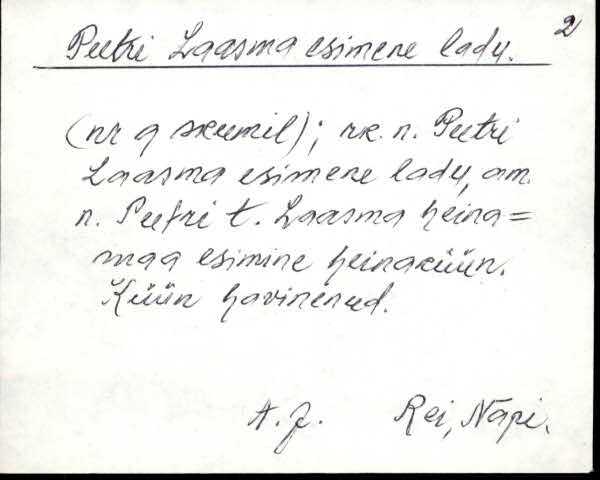 2
Peetri Laasma esimene ladu.
(nr 9 skeemil); rk. n. Peetri
Laasma esimene ladu, am.
n. Peetri t. Laasma heina=
maa esimine heinaküün.
Küün havinenud.
A. J. Rei, Näpi.